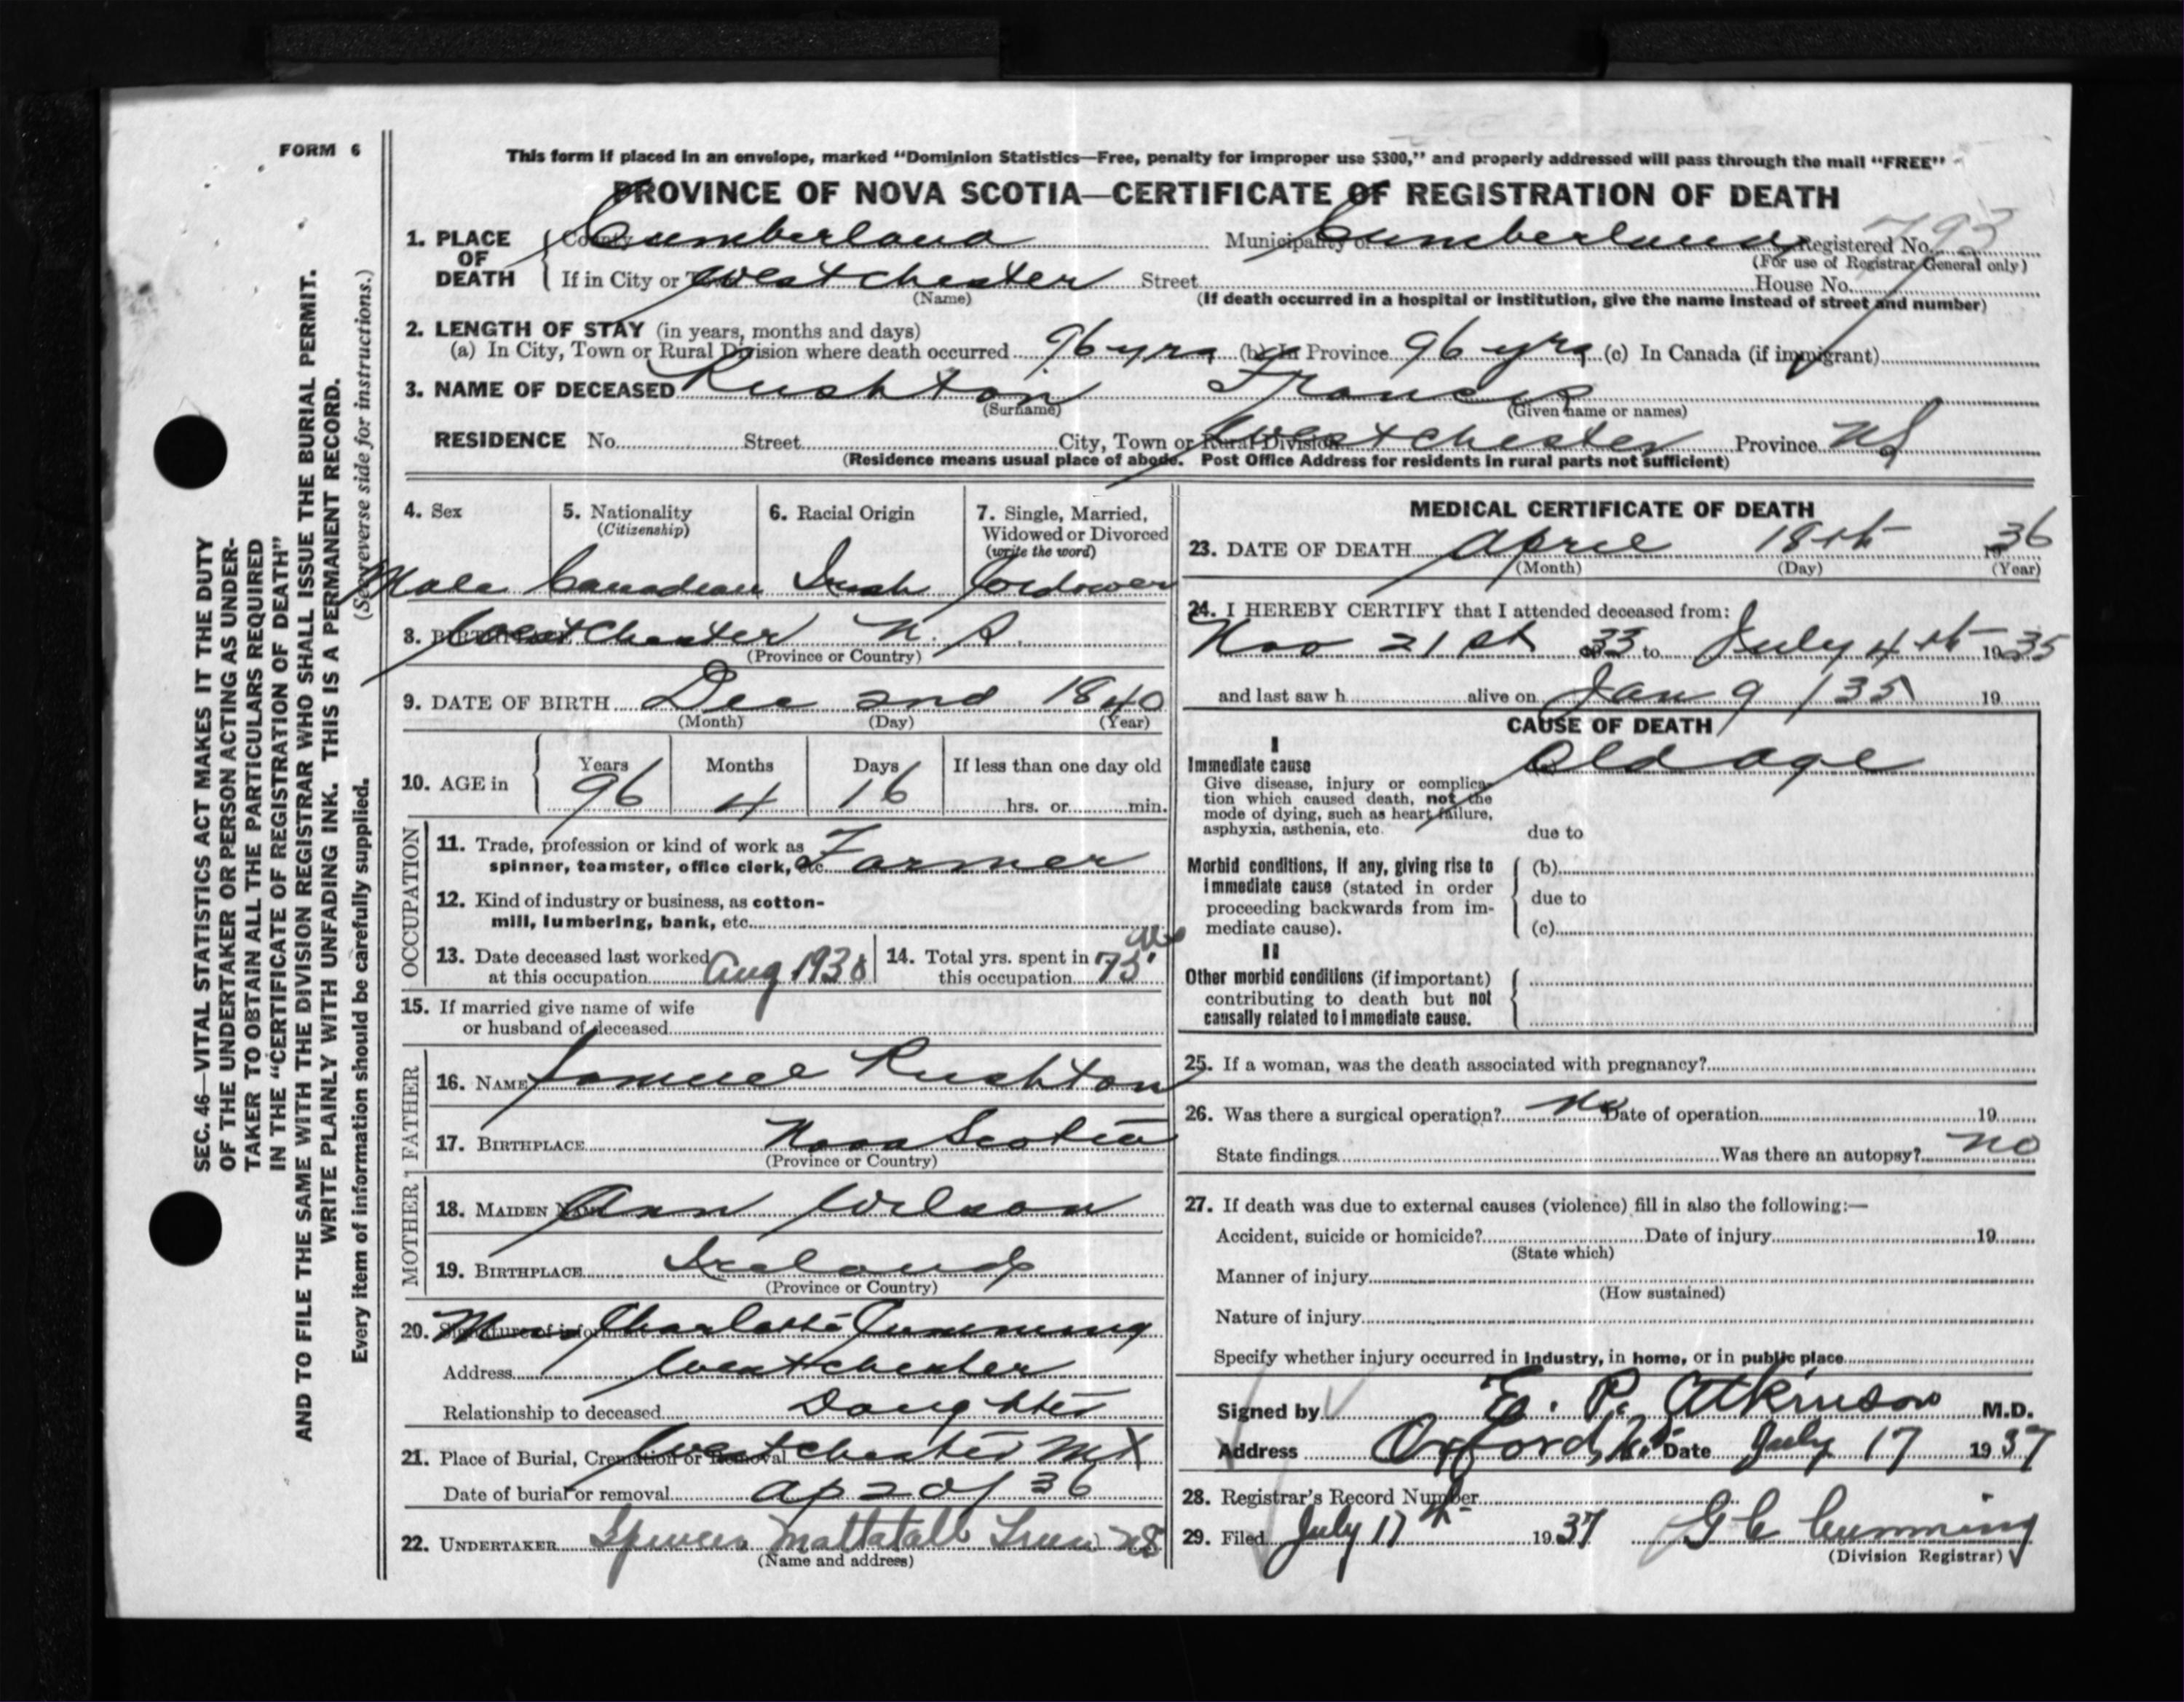 FORM 6
This form if placed in an envelope, marked "Dominion Statistics—Free, penalty for improper use $300," and properly addressed will pass through the mail "FREE"
PROVINCE OF NOVA SCOTIA—CERTIFICATE OF REGISTRATION OF DEATH
1. PLACE OF DEATH County Cumberland Municipality of Cumberland Registered No. 793
(For use of Registrar General only)
If in City or Westchester Street House No.
(Name) (If death occurred in a hospital or institution, give the name instead of street and number)
2. LENGTH OF STAY (in years, months and days)
(a) In City, Town or Rural Division where death occurred 96 yrs (b) In Province 96 yrs (c) In Canada (if immigrant)
3. NAME OF DECEASED Rushton Francis
(Surname) (Given name or names)
RESIDENCE No. Street City, Town or Rural Division Westchester Province NS
(Residence means usual place of abode. Post Office Address for residents in rural parts not sufficient)
4. Sex 5. Nationality (Citizenship) 6. Racial Origin 7. Single, Married, Widowed or Divorced (write the word)
Male Canadian Irish Widower
8. BIRTHPLACE Westchester N.S.
(Province or Country)
9. DATE OF BIRTH Dec 2nd 1840
(Month) (Day) (Year)
10. AGE in Years 96 Months 4 Days 16 If less than one day old
hrs. or min.
OCCUPATION
11. Trade, profession or kind of work as spinner, teamster, office clerk, etc. Farmer
12. Kind of industry or business, as cotton-mill, lumbering, bank, etc.
13. Date deceased last worked at this occupation Aug 193 14. Total yrs. spent in this occupation 75
15. If married give name of wife
or husband of deceased
FATHER
16. NAME Samuel Rushton
17. BIRTHPLACE Nova Scotia
(Province or Country)
MOTHER
18. MAIDEN NAME Ann Wilson
19. BIRTHPLACE Ireland
(Province or Country)
20. Signature of informant Mrs Charlotte Cumming
Address Westchester
Relationship to deceased Daughter
21. Place of Burial, Cremation or Removal Westchester Mt
Date of burial or removal Ap 20/36
22. UNDERTAKER Spencer Mattatall NS
(Name and address)
MEDICAL CERTIFICATE OF DEATH
23. DATE OF DEATH April 18th 1936
(Month) (Day) (Year)
24. I HEREBY CERTIFY that I attended deceased from:
Nov 21st 33 to July 4th 1935
and last saw h alive on Jan 9 / 35 19
CAUSE OF DEATH
I
Immediate cause (a) Old age
Give disease, injury or complication which caused death, not the mode of dying, such as heart failure, asphyxia, asthenia, etc.
due to
Morbid conditions, if any, giving rise to immediate cause (stated in order proceeding backwards from immediate cause).
(b)
due to
(c)
II
Other morbid conditions (if important) contributing to death but not causally related to immediate cause.
25. If a woman, was the death associated with pregnancy?
26. Was there a surgical operation? No Date of operation 19
State findings Was there an autopsy? no
27. If death was due to external causes (violence) fill in also the following:—
Accident, suicide or homicide? Date of injury 19
(State which)
Manner of injury
(How sustained)
Nature of injury
Specify whether injury occurred in industry, in home, or in public place
Signed by E. P. Atkinson M.D.
Address Oxford N.S. Date July 17 1937
28. Registrar's Record Number
29. Filed July 17th 1937 G C Cumming
(Division Registrar)
SEC. 46—VITAL STATISTICS ACT MAKES IT THE DUTY
OF THE UNDERTAKER OR PERSON ACTING AS UNDER-
TAKER TO OBTAIN ALL THE PARTICULARS REQUIRED
IN THE "CERTIFICATE OF REGISTRATION OF DEATH"
AND TO FILE THE SAME WITH THE DIVISION REGISTRAR WHO SHALL ISSUE THE BURIAL PERMIT.
WRITE PLAINLY WITH UNFADING INK. THIS IS A PERMANENT RECORD.
Every item of information should be carefully supplied. (See reverse side for instructions.)